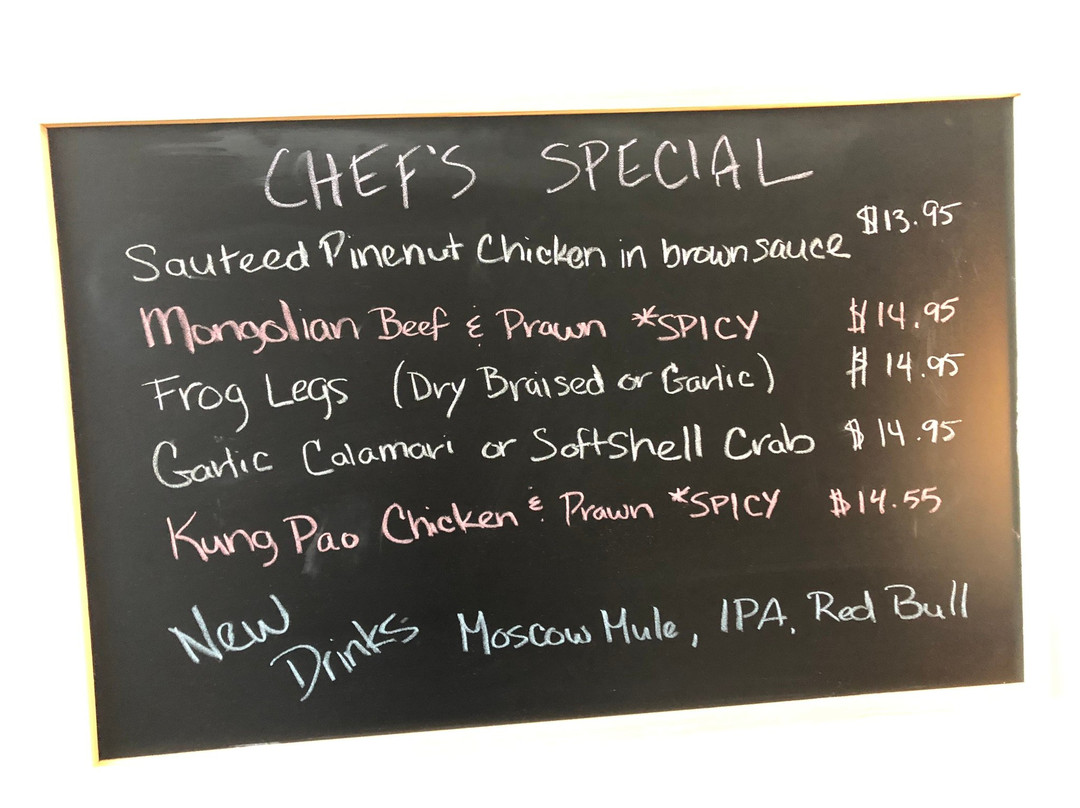 CHEF'S SPECIAL
Sauteed Pinenut Chicken in brown sauce $13.95
Mongolian Beef & Prawn *SPICY $14.95
Frog Legs (Dry Braised or Garlic) $14.95
Garlic Calamari or Softshell Crab $14.95
Kung Pao Chicken & Prawn *SPICY $14.55
New Drinks Moscow Mule, IPA, Red Bull